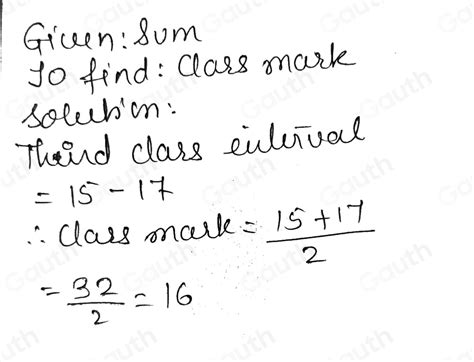 Given: Sum
To find: Class mark
Solution:
Third class interval
= 15 - 17
∴ Class mark = 15 + 17 / 2
= 32 / 2 = 16
Gauth